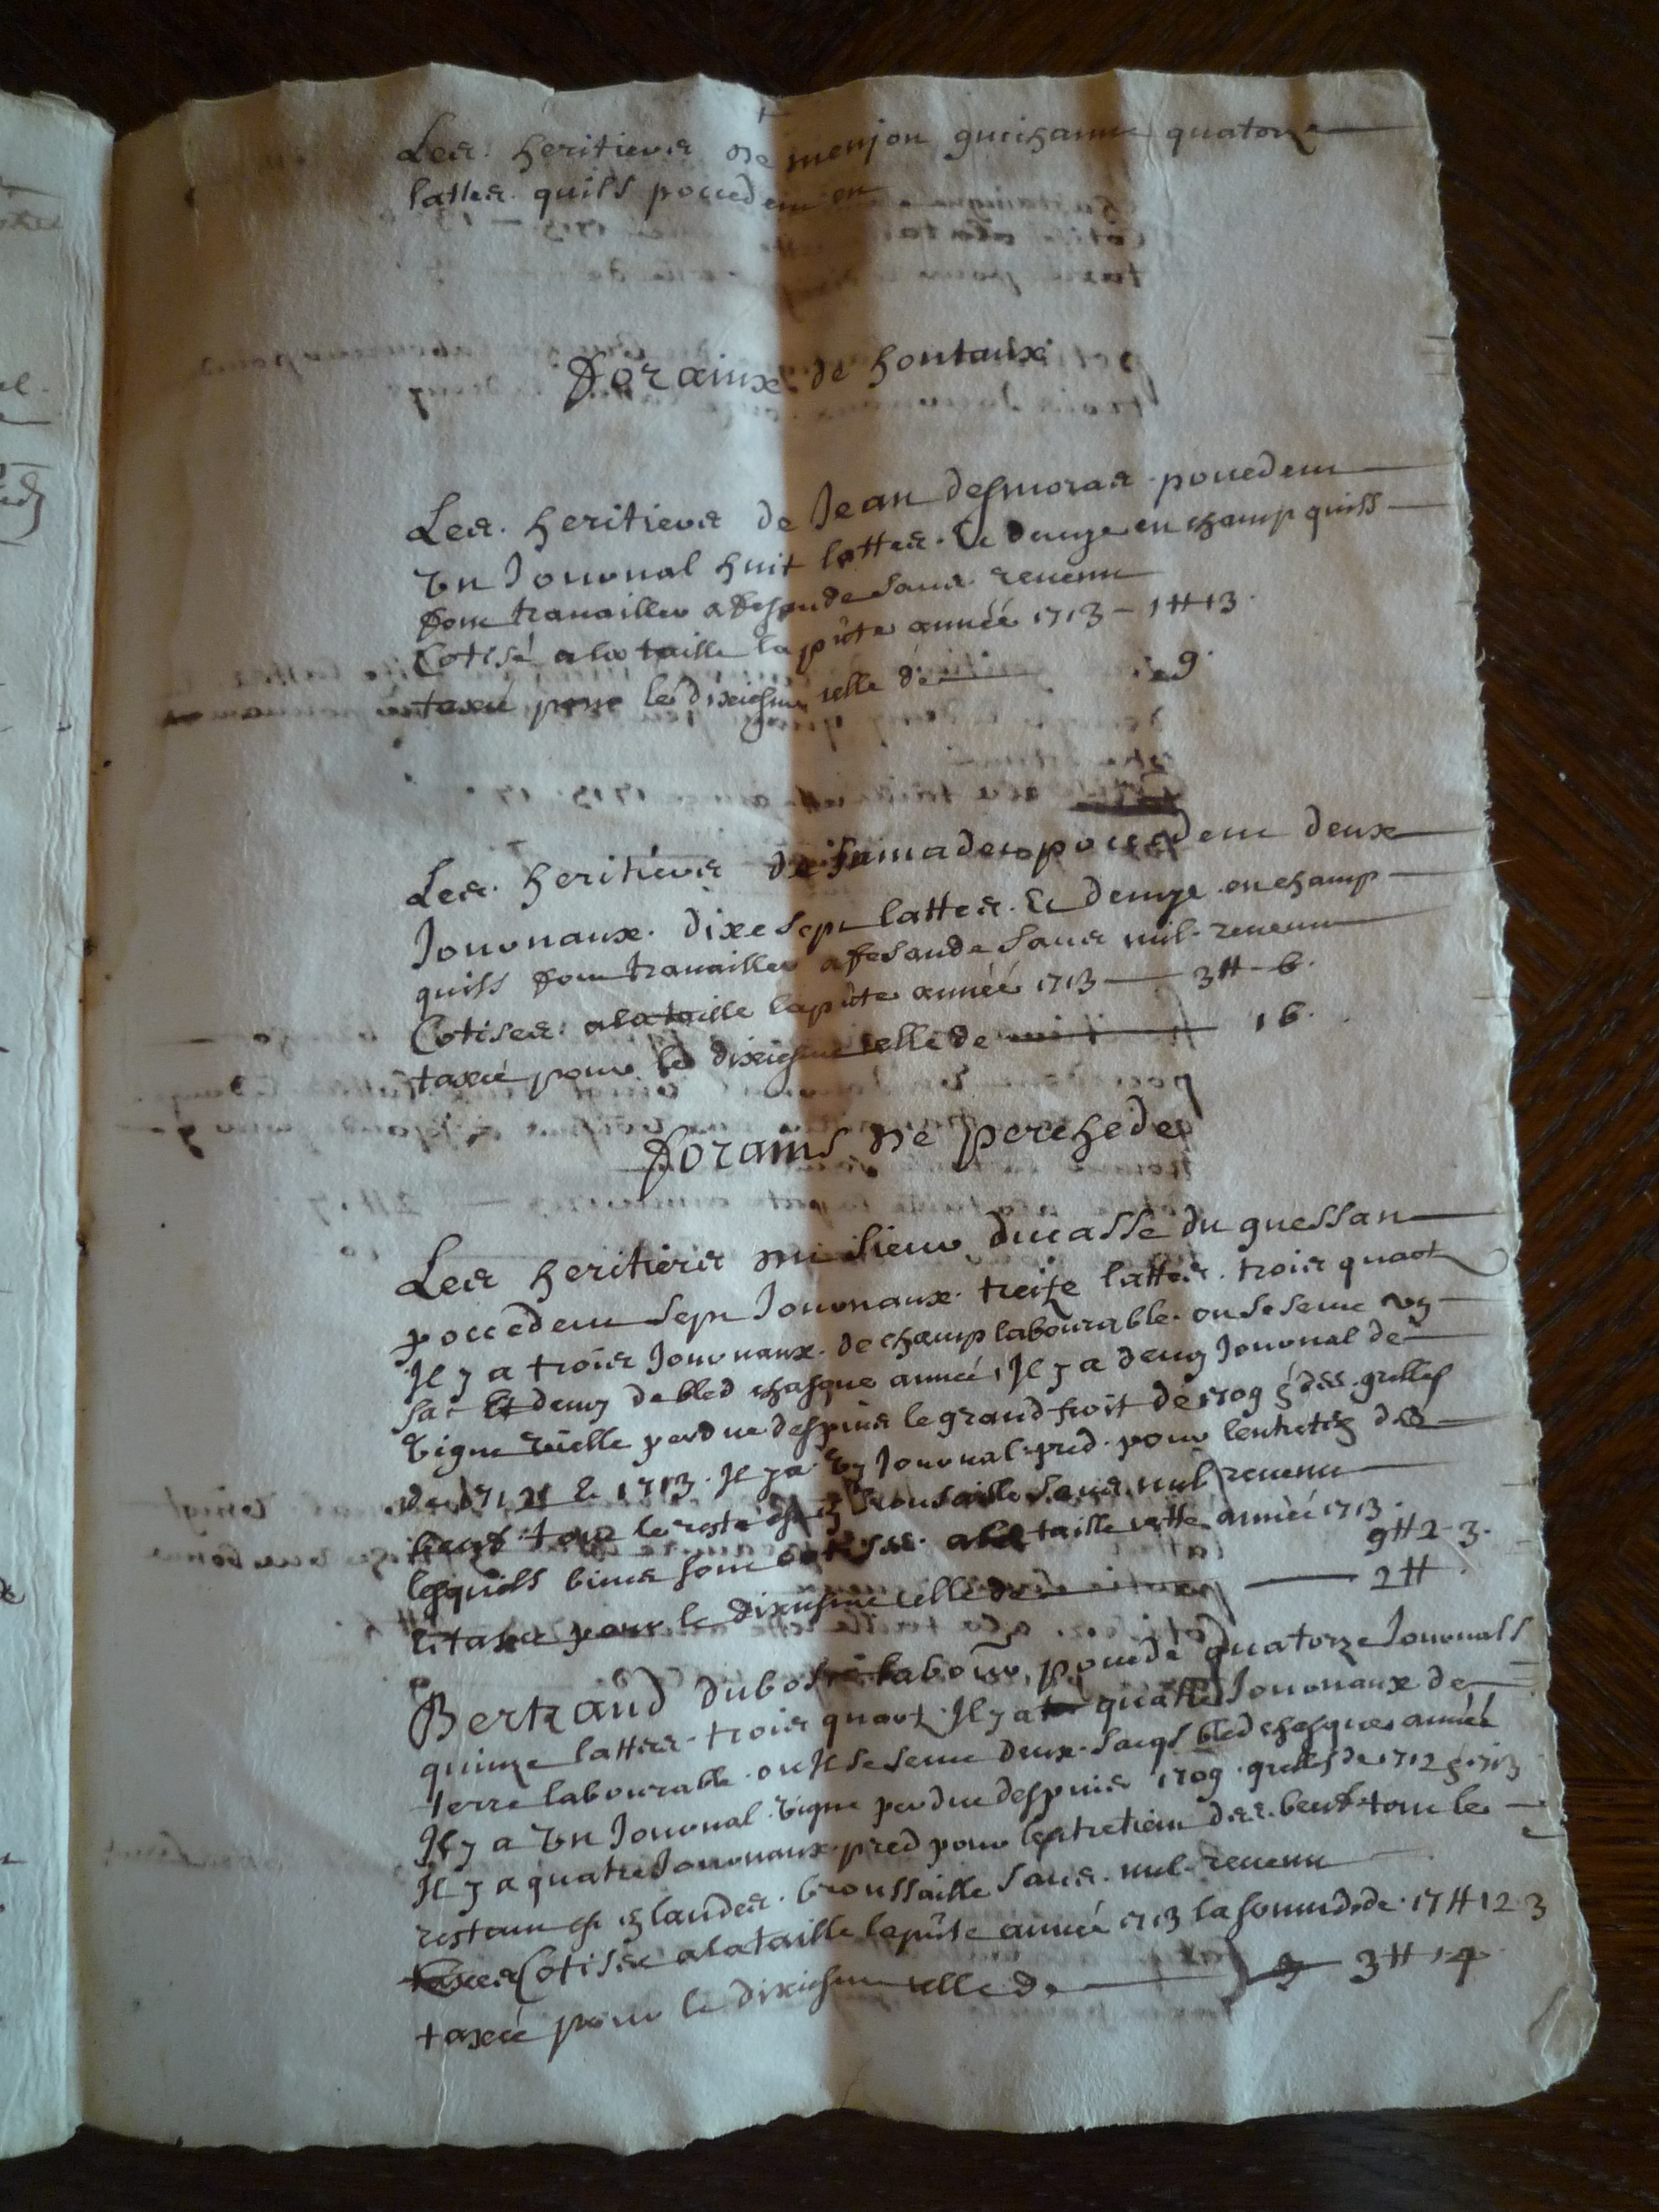 Les heritiers de menjon guichanne quatorze
lattes quils pocedent en
forainx de hontanx
Les heritiers de Jean desmoras pocedent
un Journal huit lattes Et demye en champ quils
font travailler a fesande sans revenu
Cotisé a la taille la pñte année 1713 – 1 ₶ 13
taxée pour le dixiesme celle de 9
Les heritiers de pocedent deux
Journaux dixe sept lattes Et demye en champ
quils font travailler a fesande sans nul revenu
Cotises a la taille la pñte année 1713 — 3 ₶ – 6
taxée pour le dixiesme celle de 16
forains de perchede
Les heritiers sieur ducasse du guessan
pocedent sept Journaux treize lattes trois quart
Il y a trois Journaux de champ labourable ou se seme un
sac Et demy de bled chasque année, Il y a demy Journal de
vigne vieille perdue despuis le grand froit de 1709 gresles
de 1712 & 1713 Il y a un Journal pred pour lentretien des
beufs tout le reste est en brousaille sans nul revenu
lesquels biens sont cotises a la taille cette année 1713 9 ₶ 2 – 3
Et taxée pour le dixiesme celle de — 2 ₶
Bertrand dubosc labour pocede quatorze Journals
quinze lattes trois quart Il y a quatre Journaux de
terre labourable ou Il se seme deux sacqs bled chasque année
Il y a un Journal vigne perdue despuis 1709 gresles de 1712 & 1713
Il y a quatre Journaux pred pour lentretien des beufs tout le
restant est en landes broussaille sans nul revenu
Cotisée a la taille la pñte année 1713 la somme de 17 ₶ 12 3
taxée pour le dixiesme celle de — 3 ₶ 14